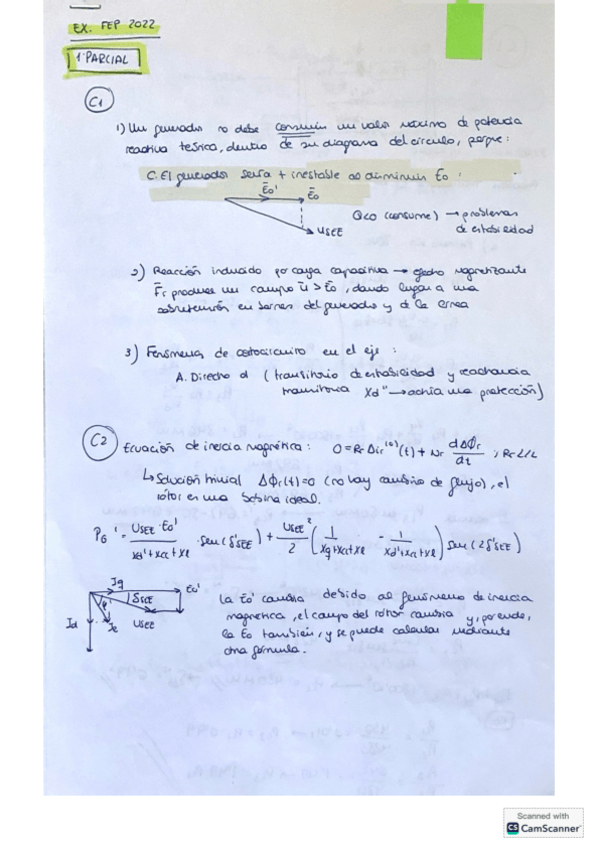 EX. FEP 2022
1ºPARCIAL
C1
1) Un generador no debe consumir un valor máximo de potencia
reactiva teórica, dentro de su diagrama del círculo, porque:
C. El generador sería + inestable al disminuir Eo
Ēo' Ēo
Q<0 (consume) → problemas
de estabilidad
USEE
2) Reacción inducido por carga capacitiva → efecto magnetizante
F̄r produce un campo ū > Ēo, dando lugar a una
sobretensión en bornes del generador y de la línea
3) Fenómenos de cortocircuito en el eje :
A. Directo d (transitorio de estabilidad y reactancia
transitoria Xd" → actúa una protección)
C2
Ecuación de inercia magnética: 0 = Rr Δir⁽ᵒ⁾(t) + Nr dΔΦr/dt ; Rr↓↓
↳ Solución trivial ΔΦr(t)=0 (no hay cambio de flujo), el
rotor es una bobina ideal.
PG' = USEE·Eo'/Xd'+Xcc+Xe · sen(δ'SEE) + USEE²/2 (1/Xq+Xcc+Xe - 1/Xd'+Xcc+Xe) sen(2δ'SEE)
Iq Eo'
φ' δSEE
Id Ie USEE
La Eo' cambia debido al fenómeno de inercia
magnética, el campo del rotor cambia y, por ende,
la Eo también, y se puede calcular mediante
otra fórmula.
Scanned with
CS CamScanner